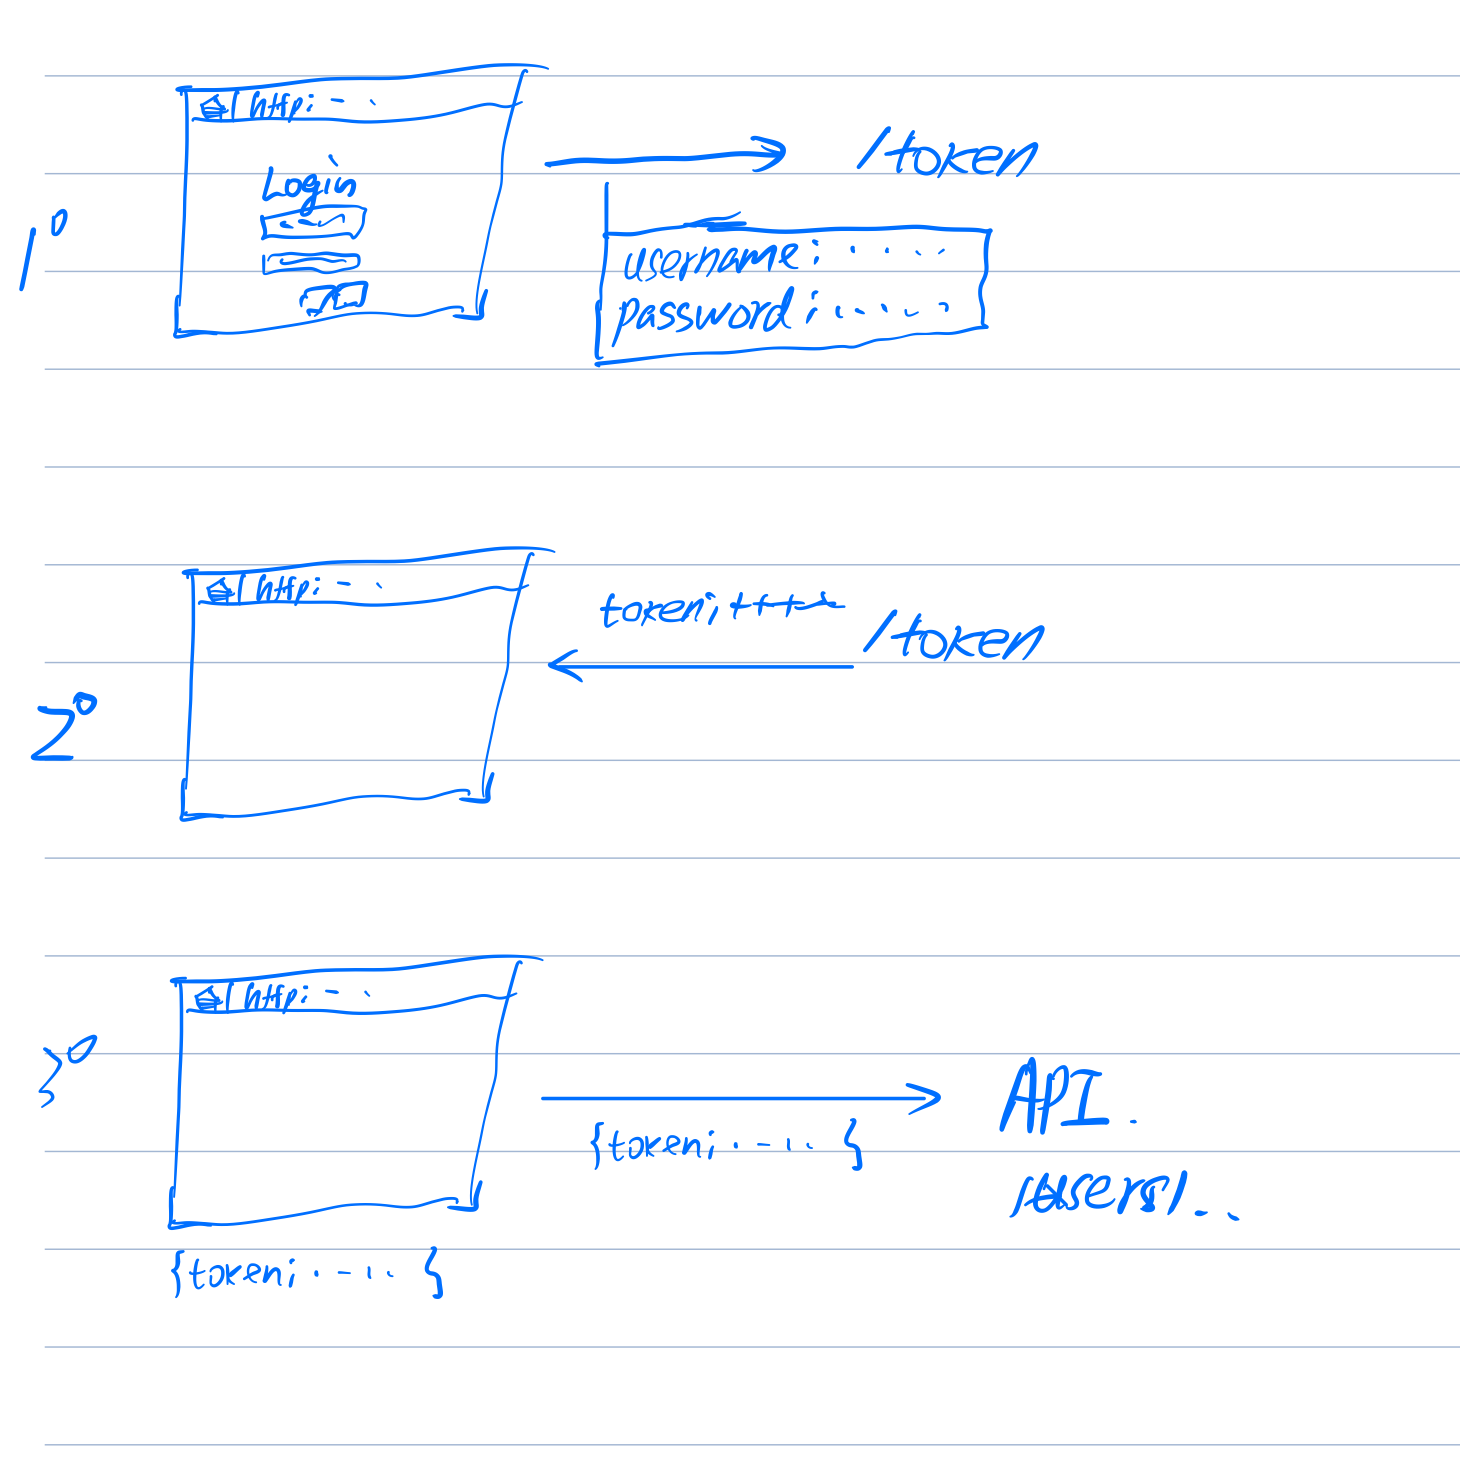 1°
http: - .
Login
/token
username: . . . .
password: . . . . .
2°
http: - .
token:
/token
3°
http: - .
{token: . - . . . }
API.
/users/..
{token: . - . . . }